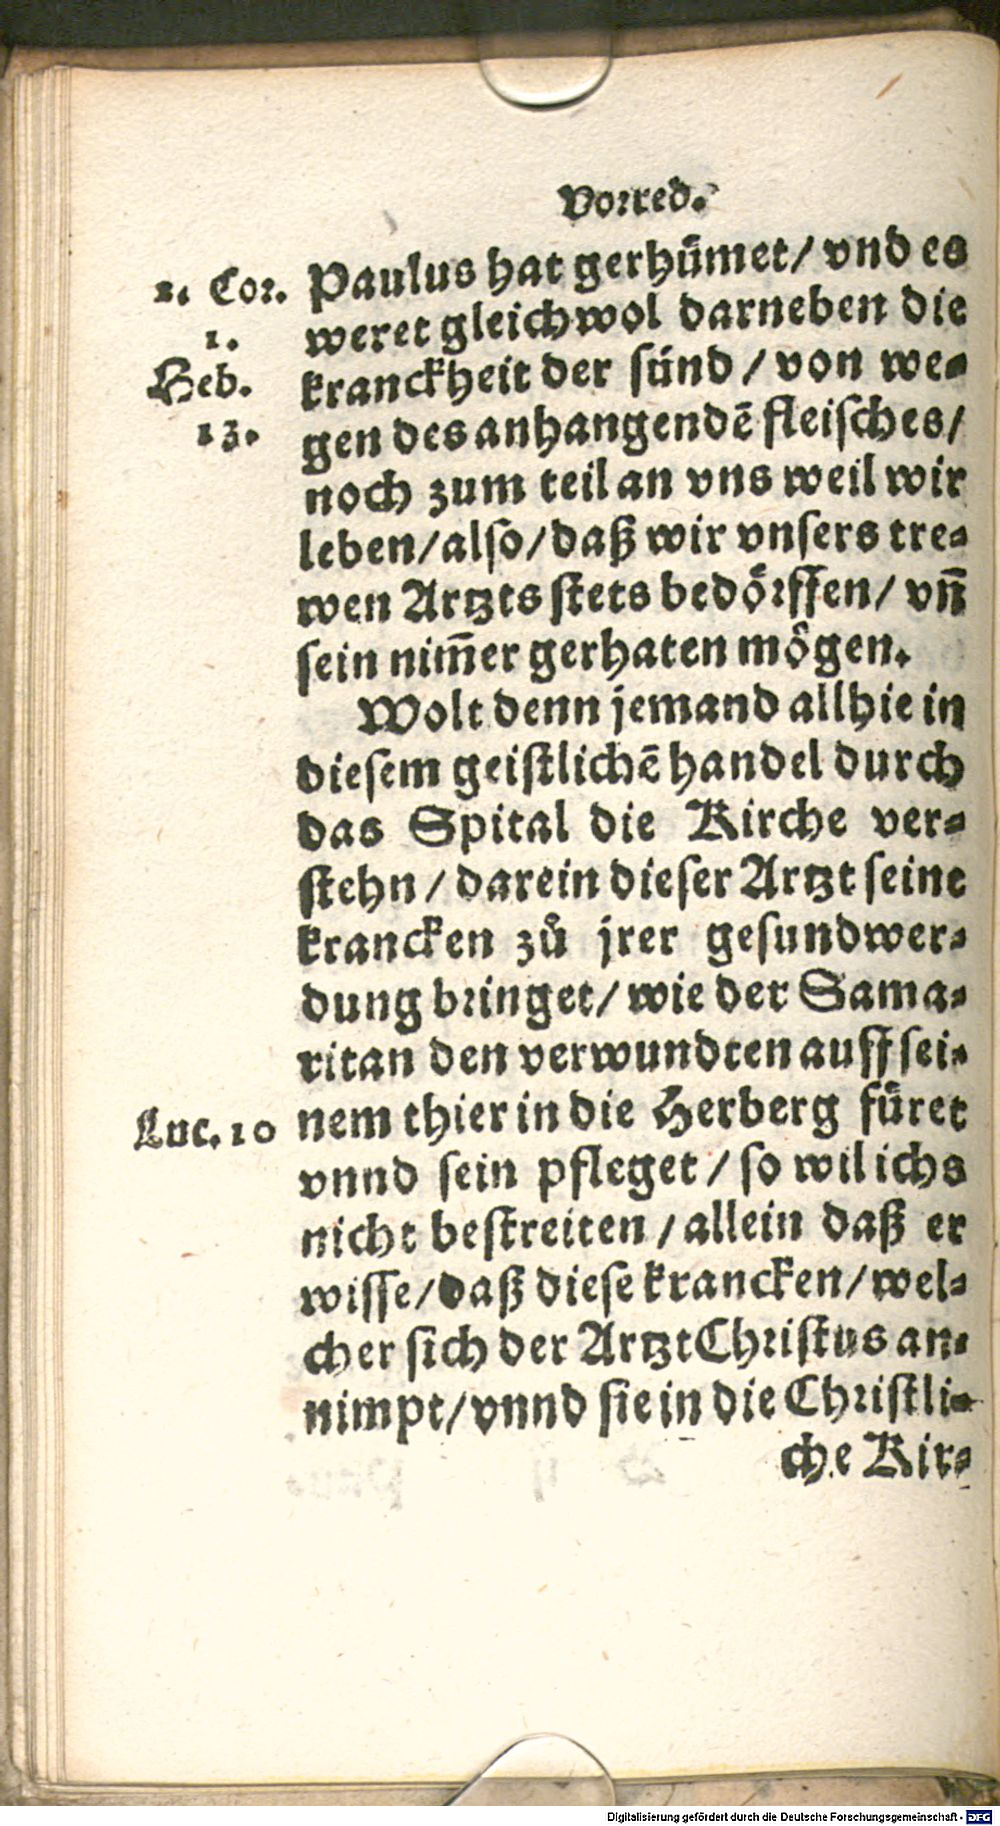 Vorred.
1. Cor.
1.
Heb.
13.
Paulus hat gerhuͤmet/ vnd es
weret gleichwol darneben die
kranckheit der suͤnd / von we⸗
gen des anhangendē fleisches/
noch zum teil an vns weil wir
leben/also/daß wir vnsers tre⸗
wen Artzts stets bedoͤrffen/ vn̄
sein nim̄er gerhaten moͤgen.
Wolt denn jemand allhie in
diesem geistlichē handel durch
das Spital die Kirche ver⸗
stehn / darein dieser Artzt seine
krancken zů jrer gesundwer⸗
dung bringet/ wie der Sama⸗
ritan den verwundten auff sei⸗
Luc. 10
nem thier in die Herberg fuͤret
vnnd sein pfleget / so wil ichs
nicht bestreiten / allein daß er
wisse/daß diese krancken/wel⸗
cher sich der Artzt Christus an⸗
nimpt/vnnd sie in die Christli⸗
che Kir⸗
Digitalisierung gefördert durch die Deutsche Forschungsgemeinschaft - DFG